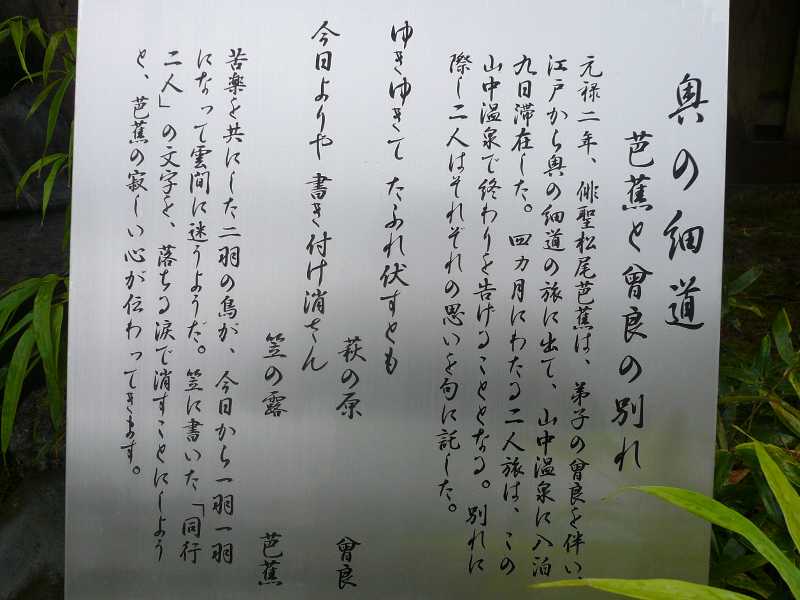 奥の細道
芭蕉と曾良の別れ
元禄二年、俳聖松尾芭蕉は、弟子の曾良を伴い、
江戸から奥の細道の旅に出て、山中温泉に八泊
九日滞在した。四カ月にわたる二人旅は、この
山中温泉で終わりを告げることとなる。別れに
際し二人はそれぞれの思いを句に託した。
ゆきゆきて たふれ伏すとも
萩の原 曾良
今日よりや 書き付け消さん
笠の露 芭蕉
苦楽を共にした二羽の鳥が、今日から一羽一羽
になって雲間に迷うようだ。笠に書いた「同行
二人」の文字を、落ちる涙で消すことにしよう
と、芭蕉の寂しい心が伝わってきます。